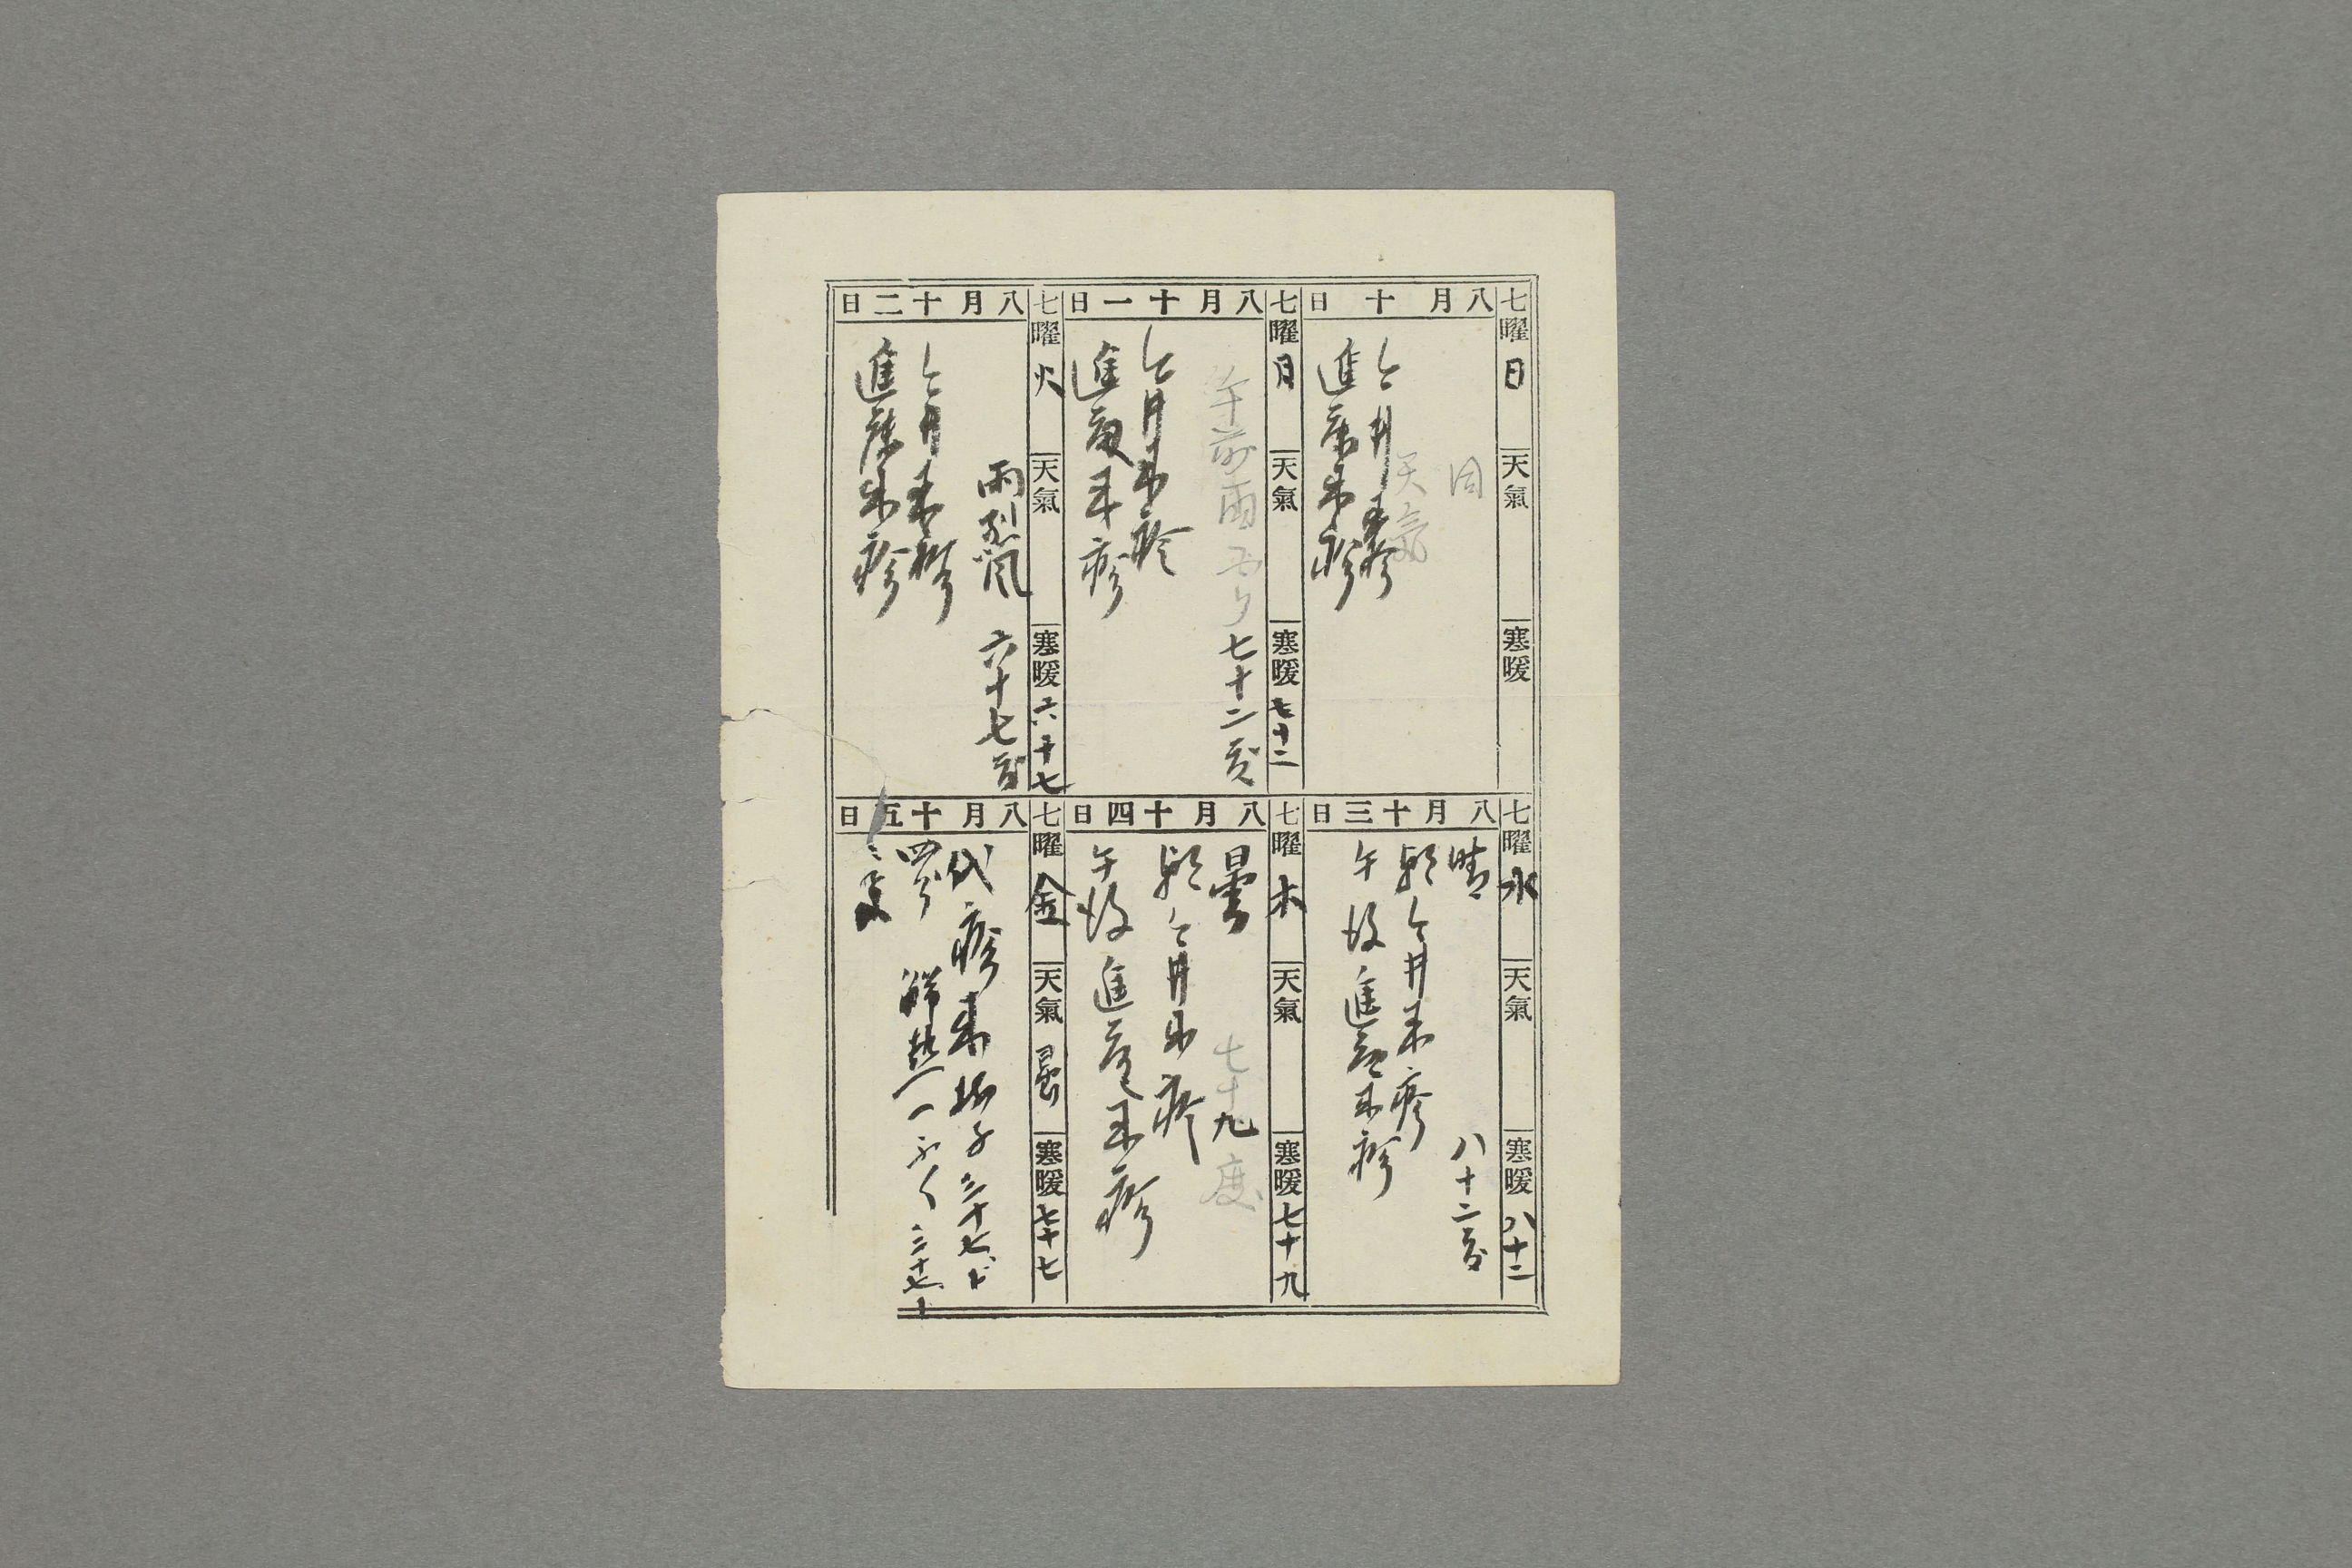 七曜 日 天氣 寒暖
八月十日
同
天気
今井来診
進藤来診
七曜 月 天氣 寒暖 七十二
八月十一日
午前雨
七十二度
今井来診
進藤来診
七曜 火 天氣 寒暖 六十七
八月十二日
雨烈風 六十七度
今井来診
進藤来診
七曜 水 天氣 寒暖 八十二
八月十三日
晴 八十二度
朝今井来診
午後進藤来診
七曜 木 天氣 寒暖 七十九
八月十四日
曇 七十九度
朝今井来診
午後進藤来診
七曜 金 天氣 曇 寒暖 七十七
八月十五日
代診来 三十七
解熱 三十七